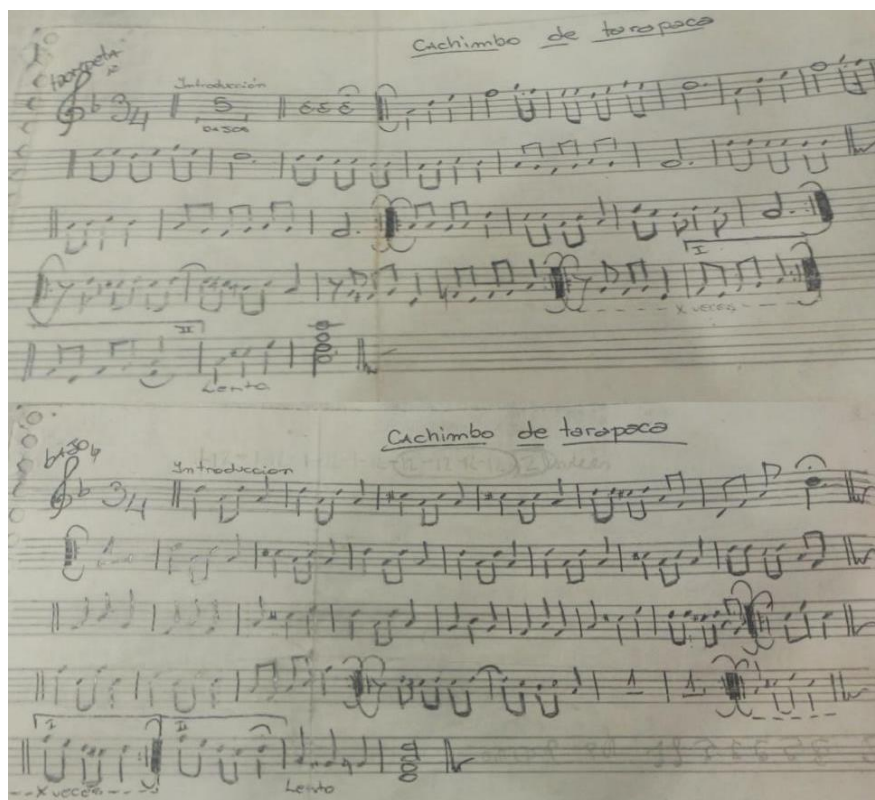 Cachimbo de tarapaca
trompeta
3 4
Introducción
5
bajos
I
x veces
II
Lento
Cachimbo de tarapaca
bajo
3 4
Introduccion
1
1 1
I II
x veces
Lento